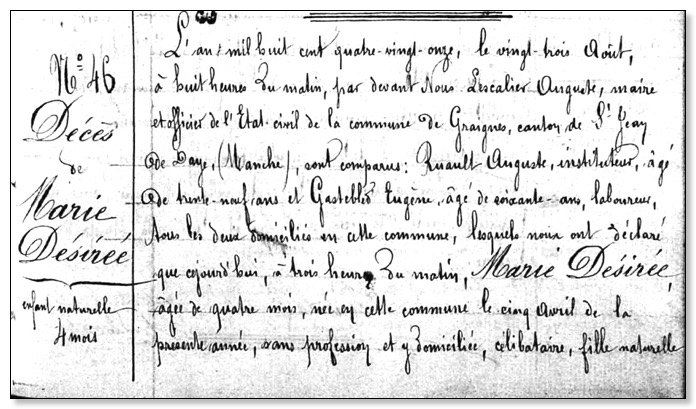 N° 46
Décès
de
Marie
Désirée
enfant naturelle
4 mois
L'an mil huit cent quatre-vingt-onze, le vingt-trois Août,
à huit heures du matin, par devant Nous Lescalier Auguste, maire
et officier de l'Etat-civil de la commune de Graignes, canton de St Jean
de Daye, (Manche), sont comparus: Ruault Auguste, instituteur, âgé
de trente-neuf ans et Gastebled Eugène, âgé de soixante-ans, laboureur,
tous les deux domiciliés en cette commune, lesquels nous ont déclaré
que cejourd'hui, à trois heures du matin, Marie Désirée,
âgée de quatre mois, née en cette commune le cinq Avril de la
présente année, sans profession et y domiciliée, célibataire, fille naturelle